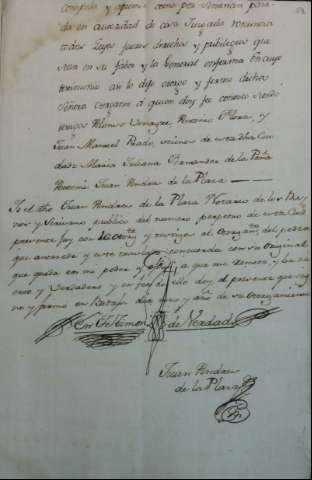 compelan y apremien como por sentencia pasa
da en autoridad de cosa Juzgada renuncia
todas Leyes fueros derechos y privilegios que
sean en su fabor y la General en forma En cuyo
testimonio asi lo dijo otorgo y firmo dicha
Señora otorgante a quien doy fee conosco siendo
testigos Alonso Antonio Perez, y
Juan Manuel Prado, vecinos de esta dha Ciu
dad= Maria Juliana Fernandez de la Peña
Antemi Juan Andres de la Plaza
Yo el dho Juan Andres de la Plaza Notario de los Rey
nos y Scrivano publico del numero perpetuo de esta Ciud
presente fuy con la otorgte y testigos al otorgamto del poder
que antecede y este concuerda con su original
que queda con mi poder y oficio a que me remito y ba
cierto y verdadero y en fee de ello doy el presente que sig
no y firmo en Bataja dia mes y año de su otorgamiento
En Testimonio de Verdad
Juan Andres
de la Plaza